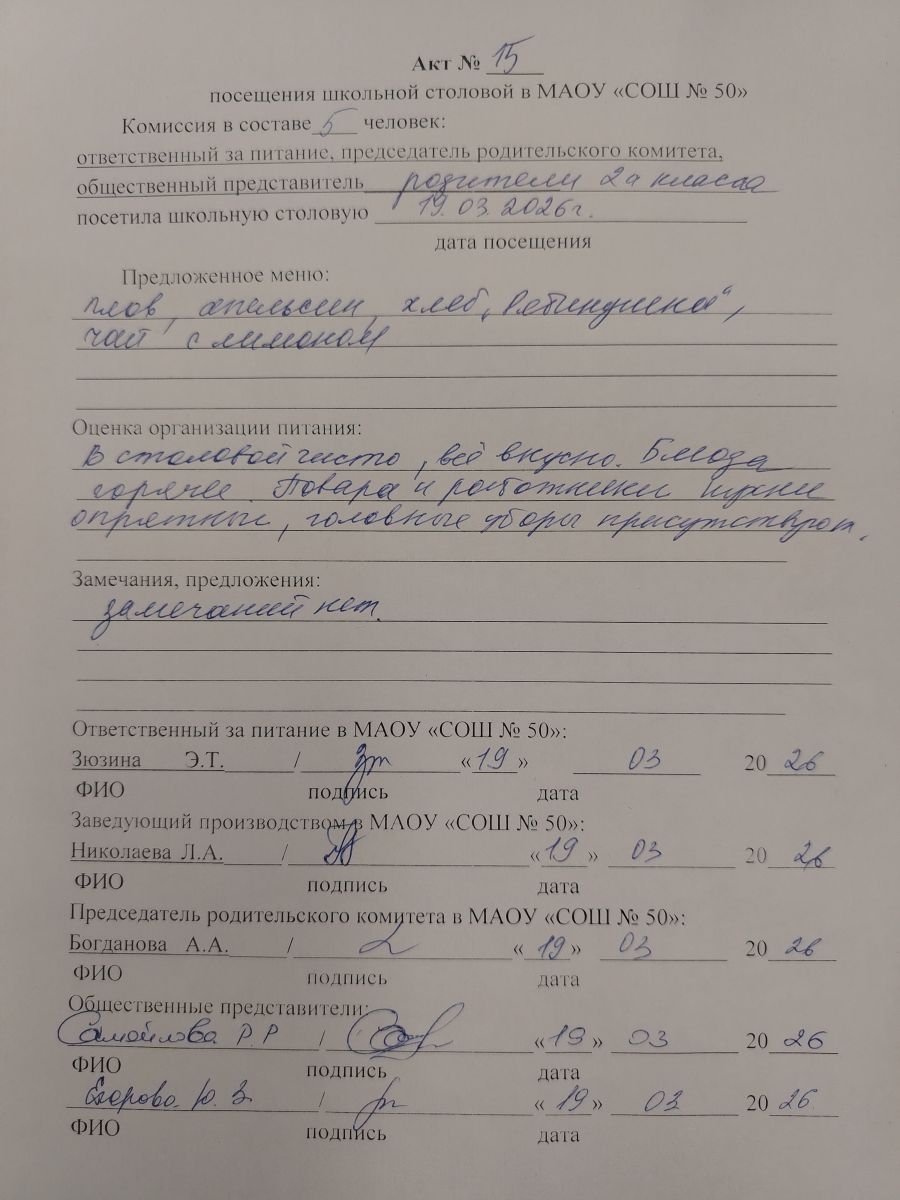 Акт № 15
посещения школьной столовой в МАОУ «СОШ № 50»
Комиссия в составе 5 человек:
ответственный за питание, председатель родительского комитета,
общественный представитель родители 2а класса
посетила школьную столовую 19.03.2026г.
дата посещения
Предложенное меню:
плов, апельсин, хлеб „Рябинушка“,
чай с лимоном
Оценка организации питания:
В столовой чисто, всё вкусно. Блюда
горячее. Повара и работники кухни
опрятные, головные уборы присутствуют.
Замечания, предложения:
замечаний нет.
Ответственный за питание в МАОУ «СОШ № 50»:
Зюзина Э.Т. / «19» 03 2026
ФИО подпись дата
Заведующий производством в МАОУ «СОШ № 50»:
Николаева Л.А. / «19» 03 2026
ФИО подпись дата
Председатель родительского комитета в МАОУ «СОШ № 50»:
Богданова А.А. / «19» 03 2026
ФИО подпись дата
Общественные представители:
Самойлова Р.Р / «19» 03 2026
ФИО подпись дата
Егорова Ю.З. / «19» 03 2026
ФИО подпись дата